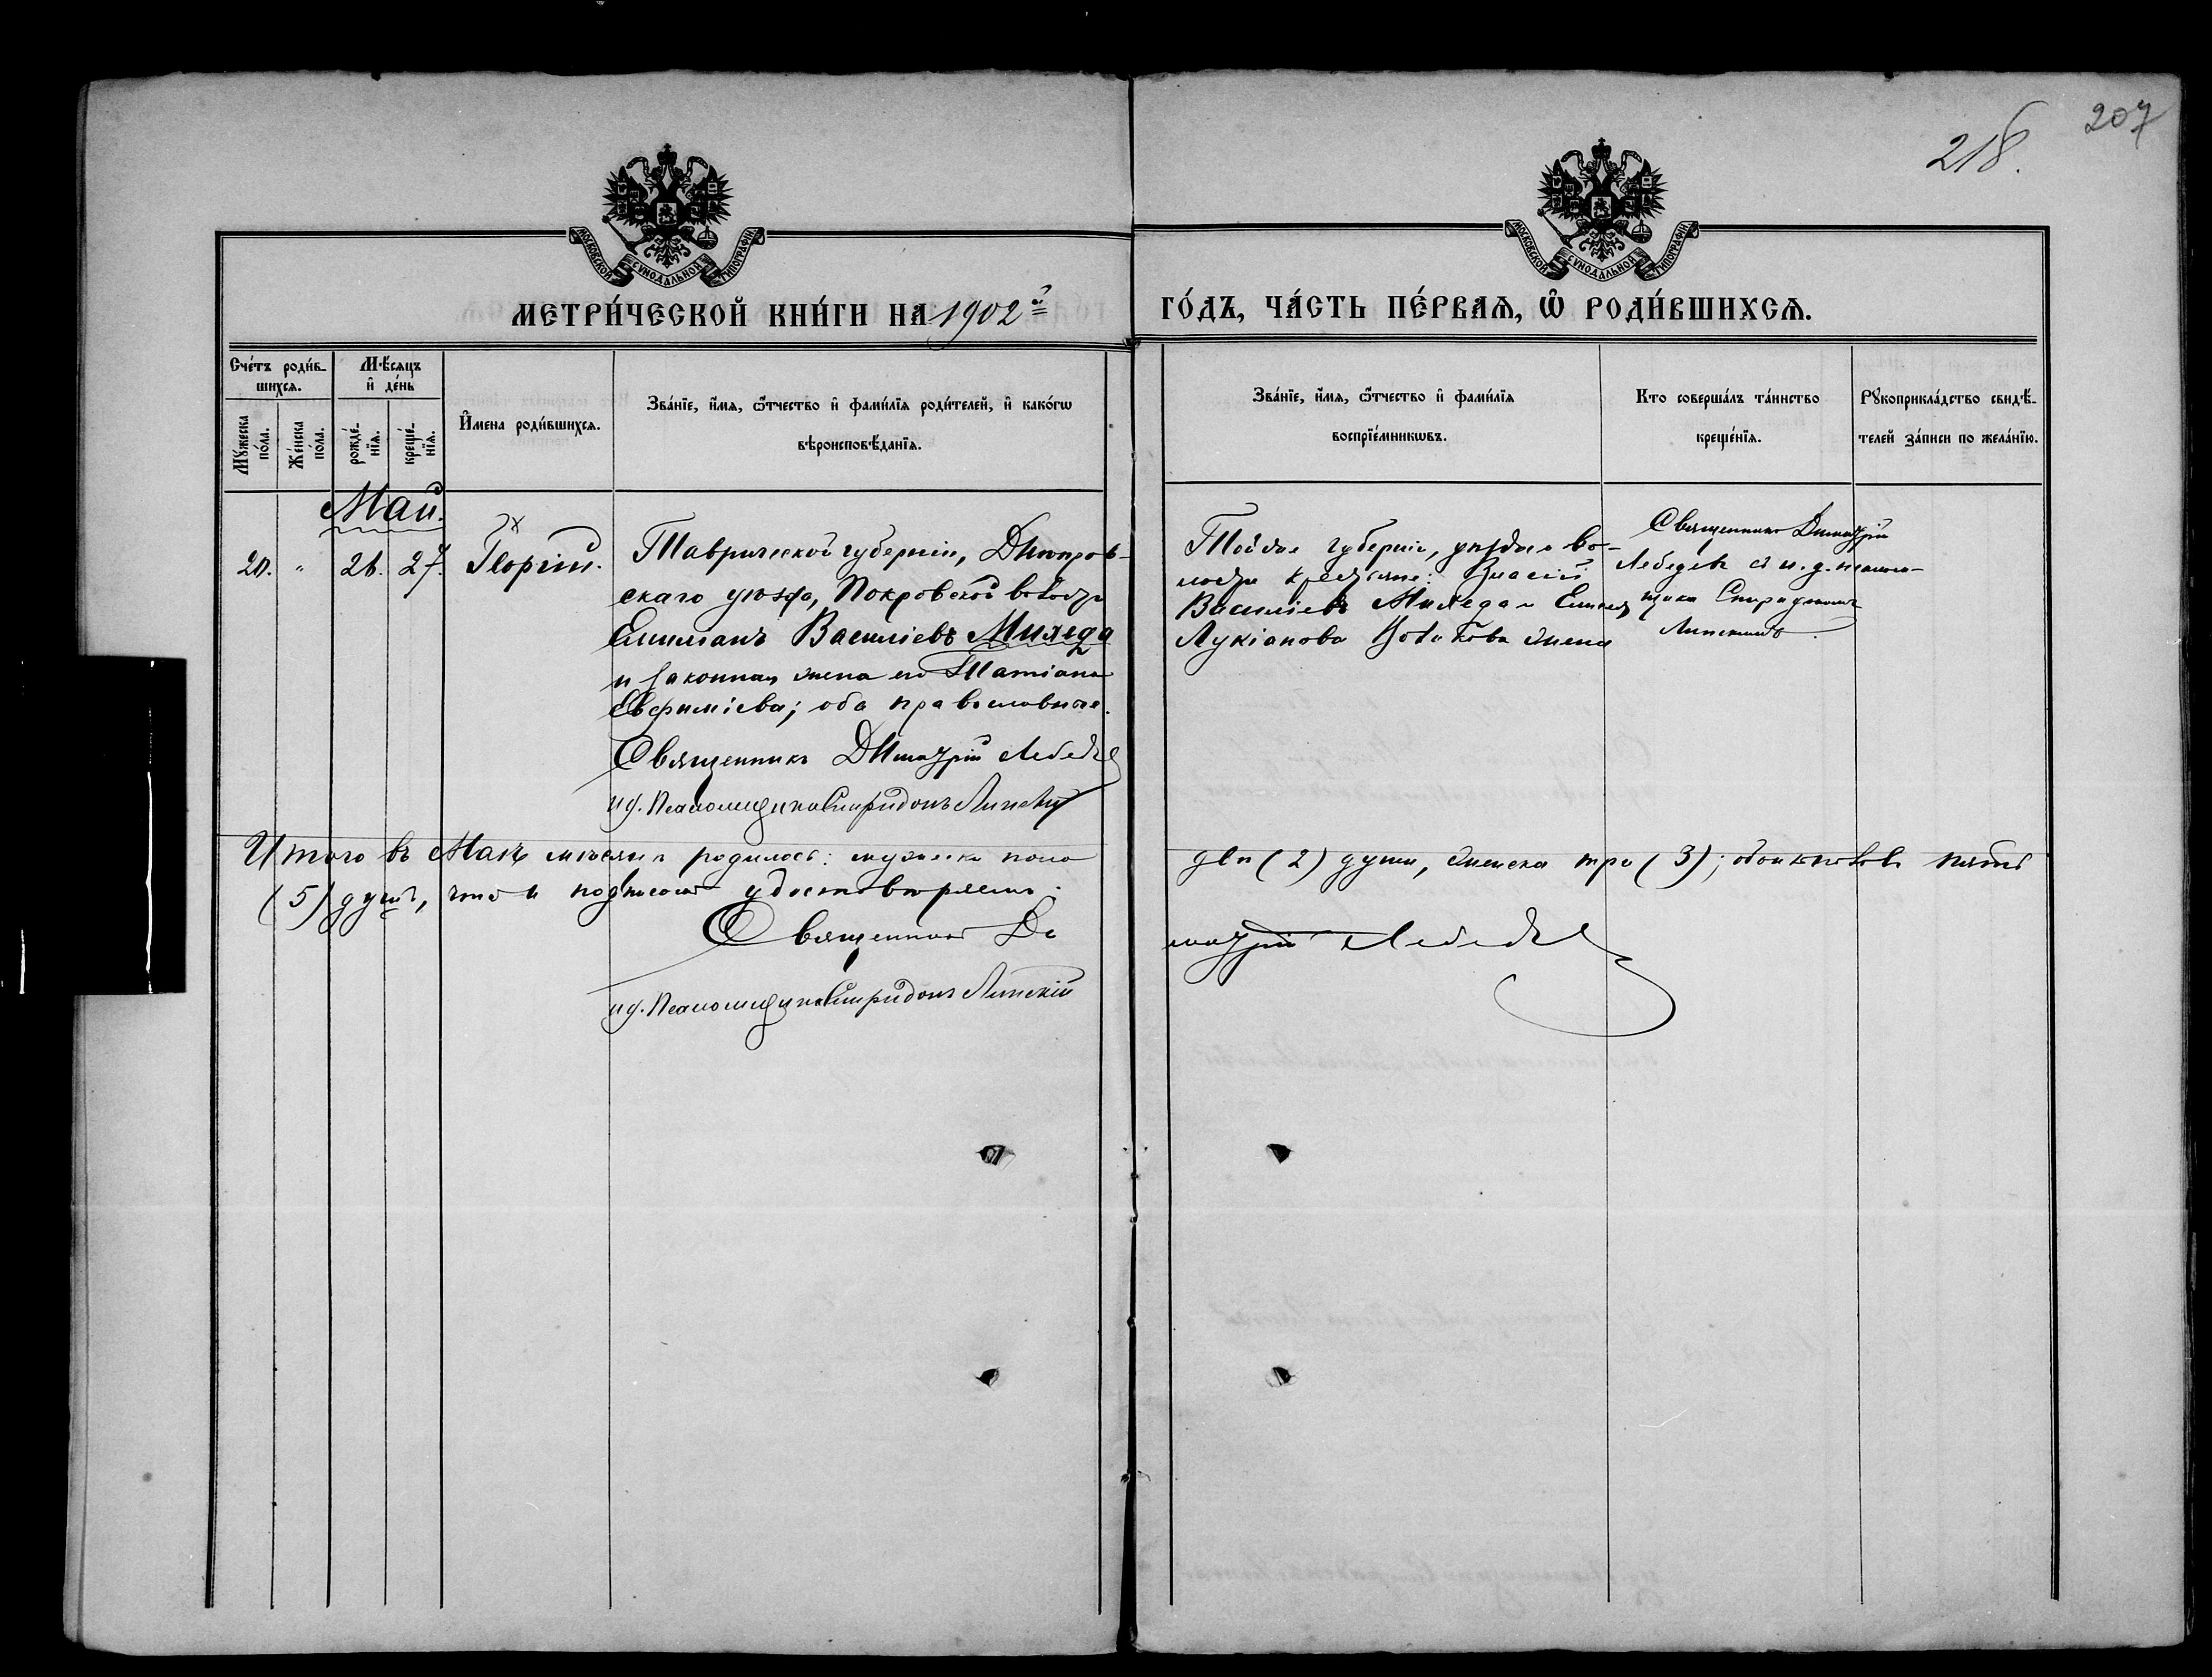 207
218.
МОСКОВСКОЙ СѴНОДАЛЬНОЙ ТИПОГРАФІИ
МОСКОВСКОЙ СѴНОДАЛЬНОЙ ТИПОГРАФІИ
МЕТРИ́ЧЕСКОЙ КНИ́ГИ НА 1902й
ГО́ДЪ, ЧА́СТЬ ПЕ́РВАѦ, Ѽ РОДИ́ВШИХСѦ.
Сче́тъ роди́в-
шихсѧ.
Мѣ́сѧцъ
и҆ де́нь
Мꙋ́жеска
по́ла.
Же́нска
по́ла.
рожде́-
нїѧ.
креще́-
нїѧ.
И҆мена роди́вшихсѧ.
Зва́нїе, и҆́мѧ, ѻ҆́тчество и҆ фами́лїѧ роди́телей, и҆ како́гѡ
вѣроисповѣ́данїѧ.
Зва́нїе, и҆́мѧ, ѻ҆́тчество и҆ фами́лїѧ
воспрїе́мникѡвъ.
Кто соверша́лъ та́инство
креще́нїѧ.
Рꙋкоприкла́дство свидѣ́-
телей за́писи по жела́нїю.
Май.
20. " 26. 27. Георгій.
Таврической губерніи, Днѣпров-
скаго уѣзда, Покровской волости
Емиліанъ Василіевъ Миляда
и законная жена его Татіана
Евфиміева; оба православные.
Священникъ Димитрій Лебедевъ
и.д. Псаломщика Спиридонъ Липскій
Той же губерніи, уѣзда и во-
лости крестьяне: Власій
Василіевъ Миляда и
Лукіанова Новикова жена
Священникъ Димитрій
Лебедевъ съ и. д. псалом-
щика Спиридономъ
Липскимъ.
Итого въ Маѣ мѣсяцѣ родилось: мужеска пола
двѣ (2) души, женска три (3); обоихъ половъ пять
(5) душъ, что и подписомъ удостовѣряемъ:
Священникъ Ди
митрій Лебедевъ
и.д. Псаломщика Спиридонъ Липскій